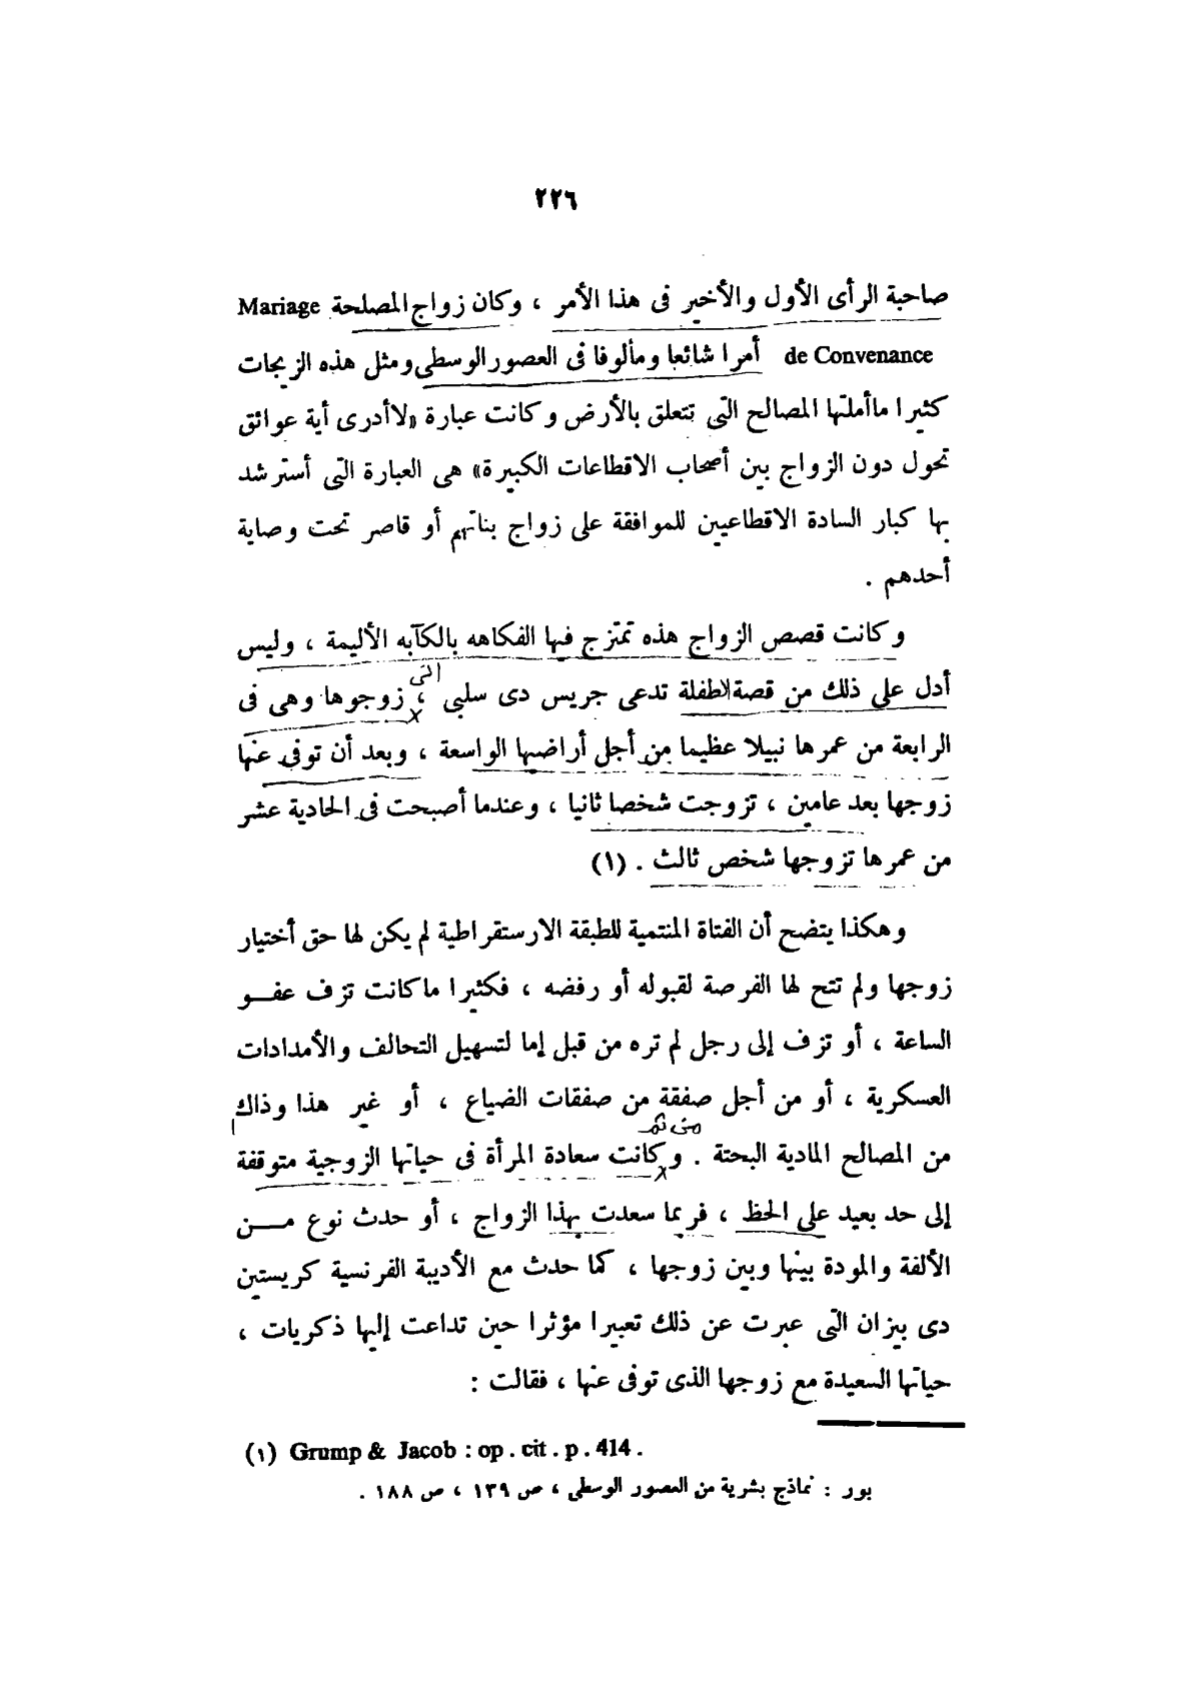 ٢٢٦
صاحبة الرأى الأول والأخير فى هذا الأمر ، وكان زواج المصلحة Mariage
de Convenance أمرا شائعا ومألوفا فى العصور الوسطى ومثل هذه الزيجات
كثيرا ماأملتها المصالح التى تتعلق بالأرض وكانت عبارة «لاأدرى أية عوائق
تحول دون الزواج بين أصحاب الاقطاعات الكبيرة» هى العبارة التى أسترشد
بها كبار السادة الاقطاعيين للموافقة على زواج بناتهم أو قاصر تحت وصاية
أحدهم .
وكانت قصص الزواج هذه تمتزج فيها الفكاهه بالكآبه الأليمة ، وليس
التى
أدل على ذلك من قصة لطفلة تدعى جريس دى سلبى ، زوجوها وهى فى
الرابعة من عمرها نبيلا عظيما من أجل أراضيها الواسعة ، وبعد أن توفى عنها
زوجها بعد عامين ، تزوجت شخصا ثانيا ، وعندما أصبحت فى الحادية عشر
من عمرها تزوجها شخص ثالث . (١)
وهكذا يتضح أن الفتاة المنتمية للطبقة الارستقراطية لم يكن لها حق أختيار
زوجها ولم تتح لها الفرصة لقبوله أو رفضه ، فكثيرا ماكانت تزف عفو
الساعة ، أو تزف إلى رجل لم تره من قبل إما لتسهيل التحالف والأمدادات
العسكرية ، أو من أجل صفقة من صفقات الضياع ، أو غير هذا وذاك
من ثم
من المصالح المادية البحتة . وكانت سعادة المرأة فى حياتها الزوجية متوقفة
إلى حد بعيد على الحظ ، فربما سعدت بهذا الزواج ، أو حدث نوع من
الألفة والمودة بينها وبين زوجها ، كما حدث مع الأديبة الفرنسية كريستين
دى بيزان التى عبرت عن ذلك تعبيرا مؤثرا حين تداعت إليها ذكريات ،
حياتها السعيدة مع زوجها الذى توفى عنها ، فقالت :
(١) Grump & Jacob : op . cit . p . 414 .
بور : نماذج بشرية من العصور الوسطى ، ص ١٣٩ ، ص ١٨٨ .